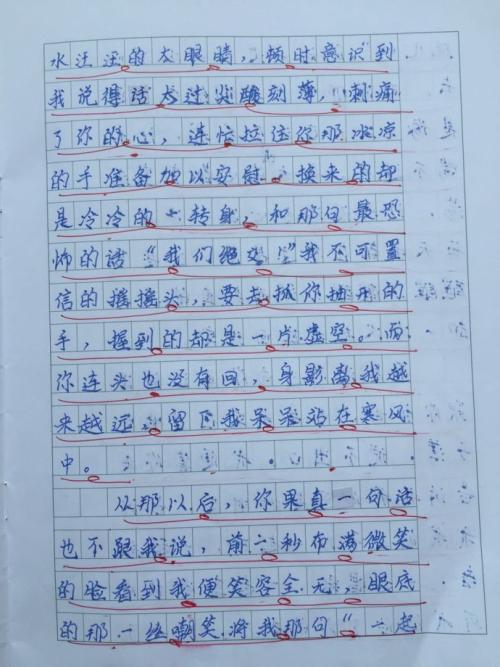 水汪汪的大眼睛，顿时意识到
我说得话太过尖酸刻薄，刺痛
了你的心，连忙拉住你那冰凉
的手准备加以安慰，换来的却
是冷冷的一转身，和那句最恐
怖的话“我们绝交！”我不可置
信的摇摇头，要去抓你抽开的
手，握到的却是一片虚空。而
你连头也没有回，身影离我越
来越远，留下我呆呆站在寒风
中。
从那以后，你果真一句话
也不跟我说，前一秒布满微笑
的脸看到我便笑容全无，眼底
的那一丝嘲笑将我那句“一起